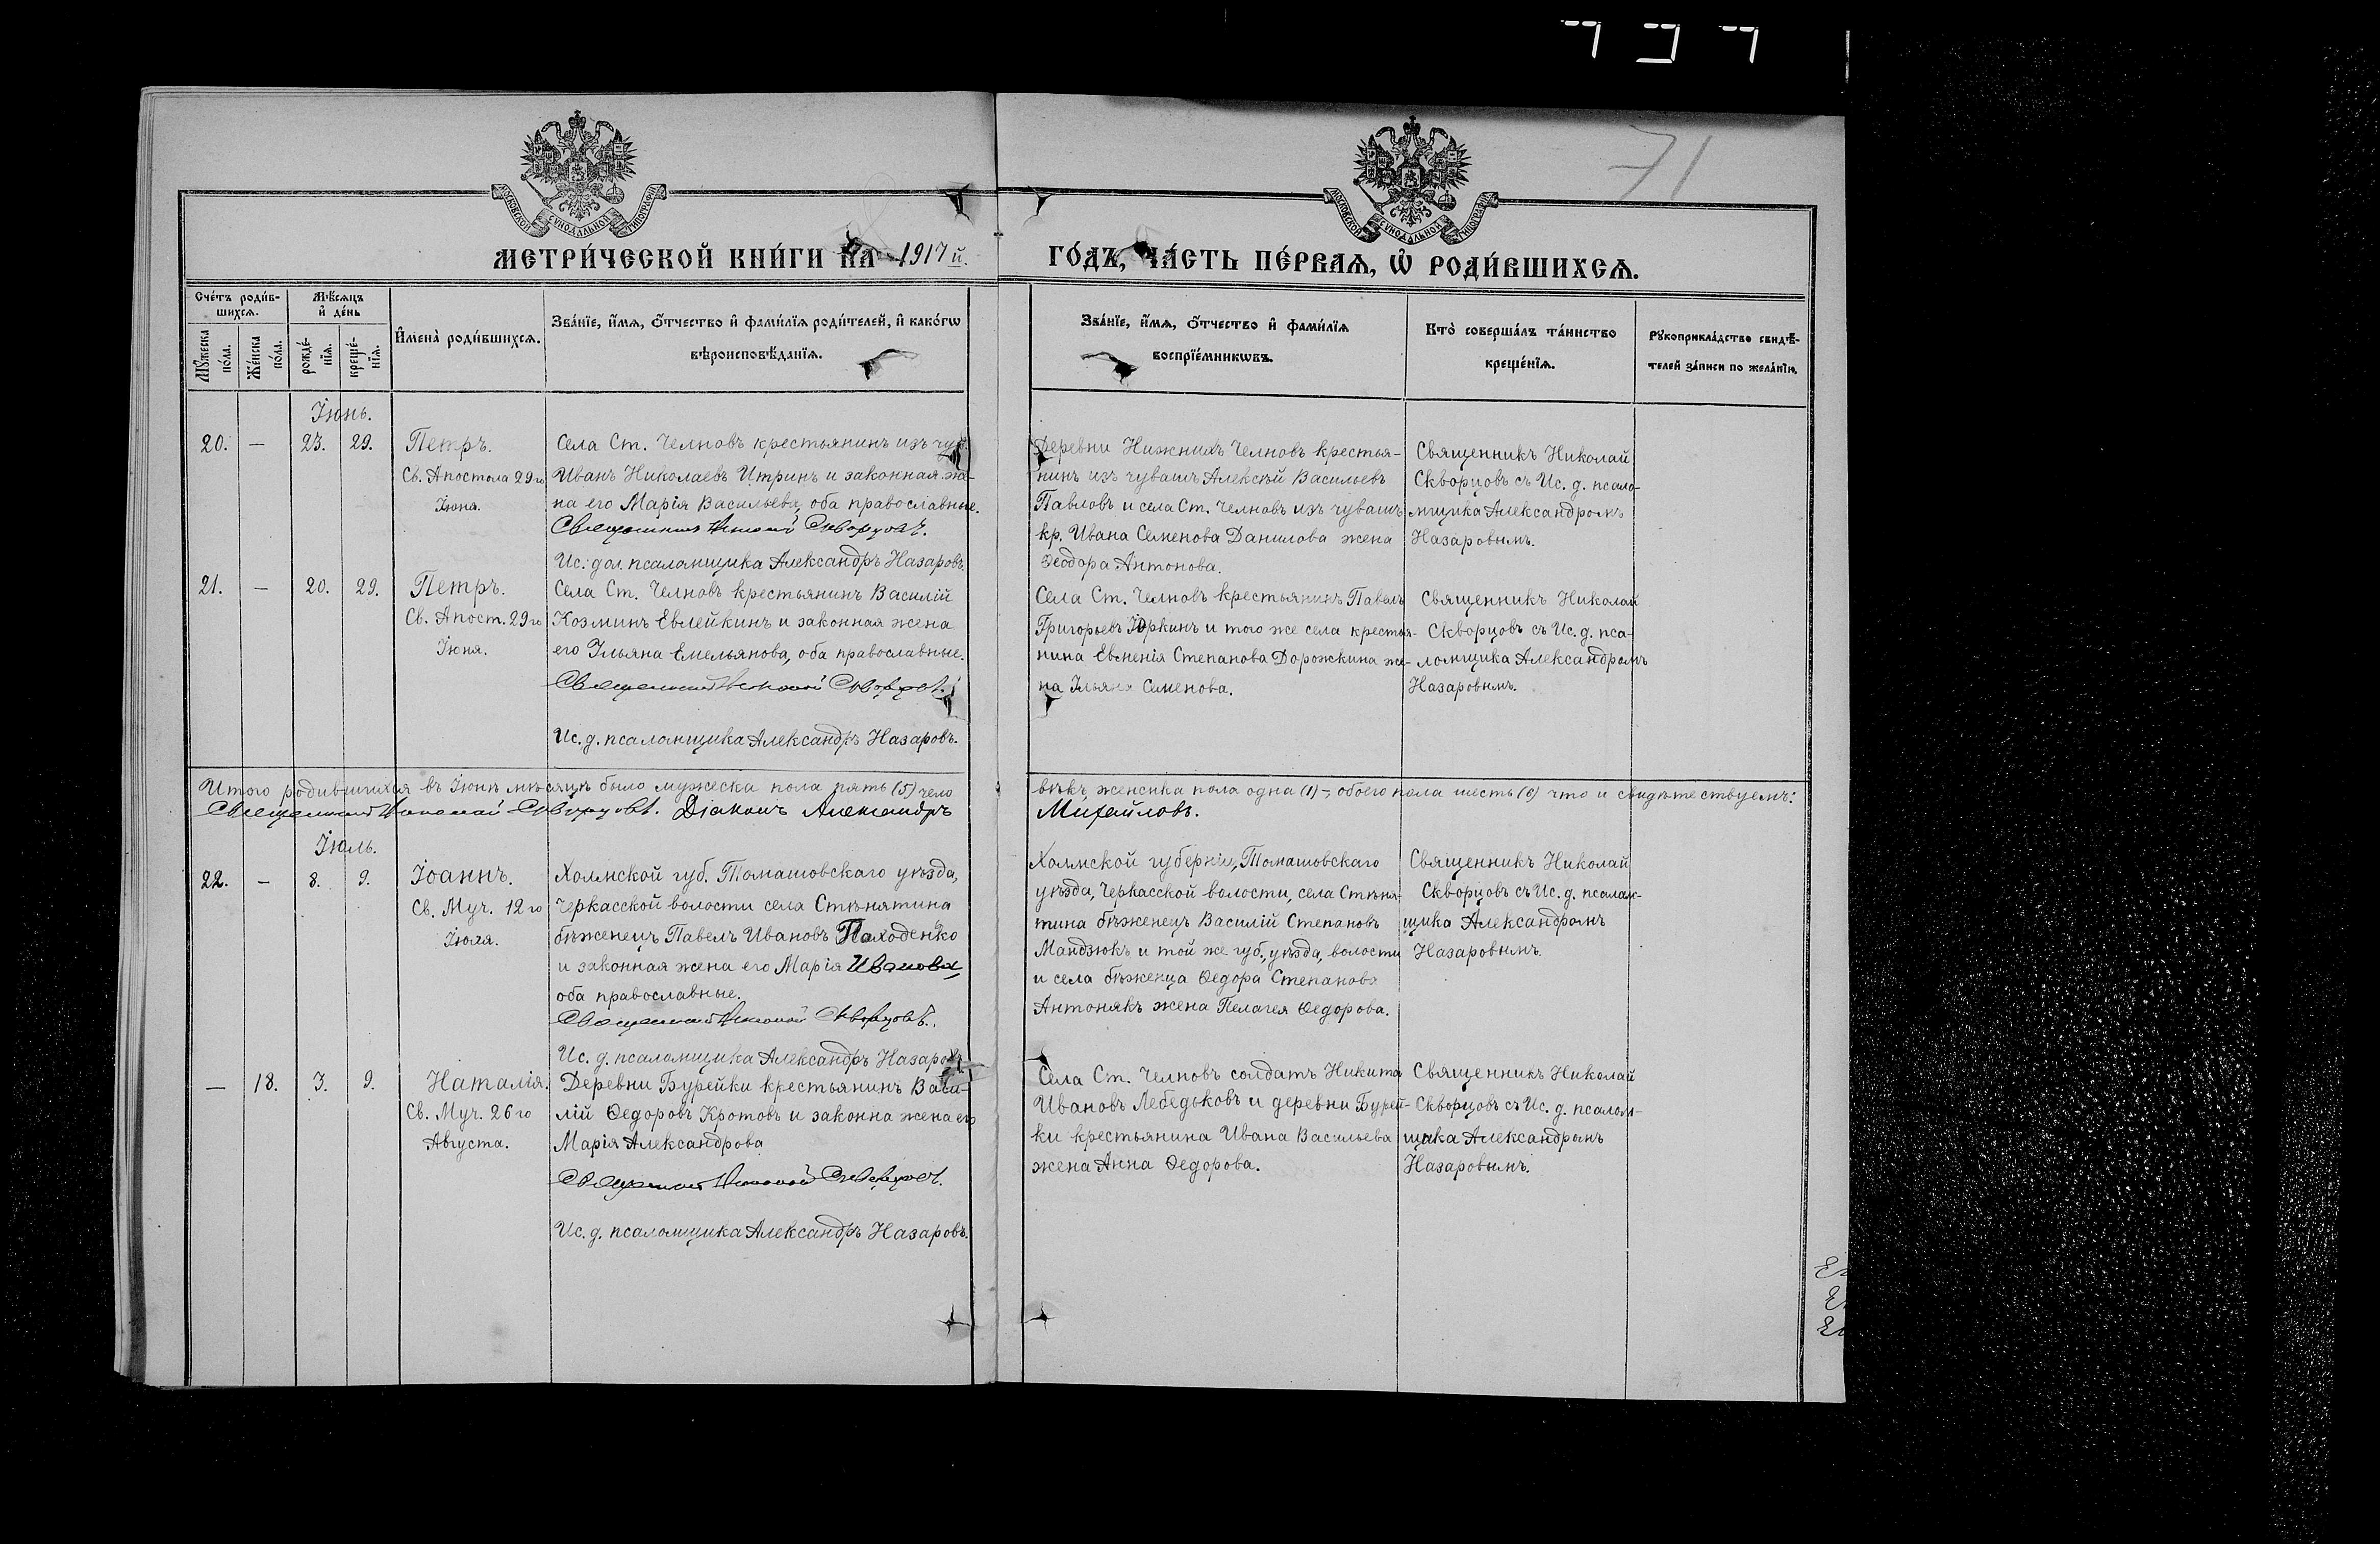 71
МОСКОВСКОЙ СУНОДАЛЬНОЙ ТИПОГРАФІИ
МОСКОВСКОЙ СУНОДАЛЬНОЙ ТИПОГРАФІИ
МЕТРИ́ЧЕСКОЙ КНИ́ГИ НА 1917 й.
ГО́ДЪ, ЧА́СТЬ ПЕ́РВАѦ, Ѡ РОДИ́ВШИХСѦ.
Сче́тъ роди́в-
шихсѧ.
Мꙋ́жеска по́ла.
Же́нска по́ла.
Мѣ́сѧцъ
и҆ де́нь
рожде́-
нїѧ.
креще́-
нїѧ.
И҆мена̀ роди́вшихсѧ.
Зва́нїе, и҆́мѧ, ѻ҆́тчество и҆ фами́лїѧ роди́телей, и҆ како́гѡ
вѣроисповѣ́данїѧ.
Зва́нїе, и҆́мѧ, ѻ҆́тчество и҆ фами́лїѧ
воспрїе́мникѡвъ.
Кто̀ соверша́лъ та́инство
креще́нїѧ.
Рꙋкоприкла́дство свидѣ́-
телей за́писи по жела́нїю.
Іюнь.
20. — 23. 29. Петръ.
Св. Апостола 29го
Іюня.
Села Ст. Челновъ крестьянинъ изъ чув.
Иванъ Николаевъ Итринъ и законная же-
на его Марія Васильева, оба православные.
Священникъ Николай Скворцовъ.
Ис. дол. псаломщика Александръ Назаровъ.
Деревни Нижнихъ Челновъ крестья-
нинъ изъ чувашъ Алексѣй Васильевъ
Павловъ и села Ст. Челновъ изъ чувашъ
кр. Ивана Семенова Данилова жена
Ѳеодора Антонова.
Священникъ Николай
Скворцовъ съ Ис. д. псало-
мщика Александромъ
Назаровымъ.
21. — 20. 29. Петръ.
Св. Апост. 29го
Іюня.
Села Ст. Челновъ крестьянинъ Василій
Козминъ Евлейкинъ и законная жена
его Ульяна Емельянова, оба православные.
Священникъ Николай Скворцовъ.
Ис. д. псаломщика Александръ Назаровъ.
Села Ст. Челновъ крестьянинъ Павелъ
Григорьевъ Юркинъ и того же села крестья-
нина Евменія Степанова Дорожкина же-
на Ульяна Семенова.
Священникъ Николай
Скворцовъ съ Ис. д. пса-
ломщика Александромъ
Назаровымъ.
Итого родившихся въ Іюнѣ мѣсяцѣ было мужеска пола пять (5) чело
вѣкъ, женска пола одна (1) – обоего пола шесть (6) что и свидѣтествуемъ:
Священникъ Николай Скворцовъ. Діаконъ Александръ
Михайловъ.
Іюль.
22. — 8. 9. Іоаннъ.
Св. Муч. 12го
Іюля.
Холмской губ. Томашовскаго уѣзда,
Черкасской волости села Стѣнятина
бѣженецъ Павелъ Ивановъ Походенко
и законная жена его Марія Иванова,
оба православные.
Священникъ Николай Скворцовъ.
Ис. д. псаломщика Александръ Назаровъ
Холмской губерніи, Томашовскаго
уѣзда, Черкасской волости, села Стѣня-
тина бѣженецъ Василій Степановъ
Мандзюкъ и той же губ., уѣзда, волости
и села бѣженца Ѳедора Степанова
Антонякъ жена Пелагея Ѳедорова.
Священникъ Николай
Скворцовъ съ Ис. д. псалом-
щика Александромъ
Назаровымъ.
— 18. 3. 9. Наталія.
Св. Муч. 26го
Августа.
Деревни Бурейки крестьянинъ Васи-
лій Ѳедоровъ Кротовъ и законна жена его
Марія Александрова
Священникъ Николай Скворцовъ.
Ис. д. псаломщика Александръ Назаровъ.
Села Ст. Челновъ солдатъ Никита
Ивановъ Лебедьковъ и деревни Бурей-
ки крестьянина Ивана Васильева
жена Анна Ѳедорова.
Священникъ Николай
Скворцовъ съ Ис. д. псалом-
щика Александромъ
Назаровымъ.